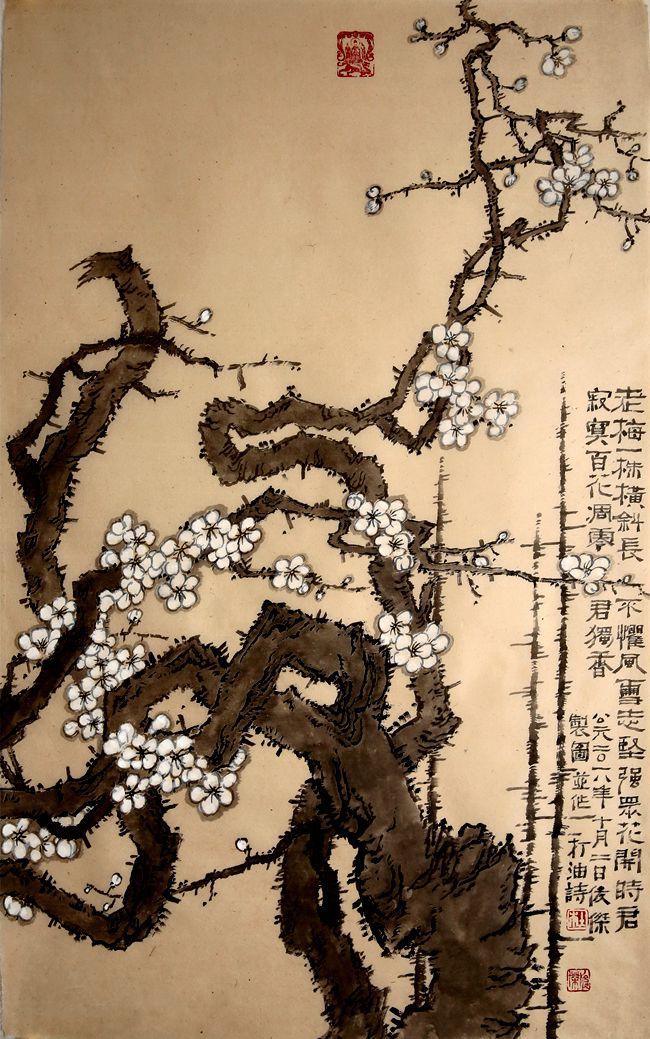 老梅一株橫斜長不懼風雪志堅強眾花開時君
寂寞百花凋零君獨香
公元二〇一六年十月二日俊傑
製圖並作一打油詩